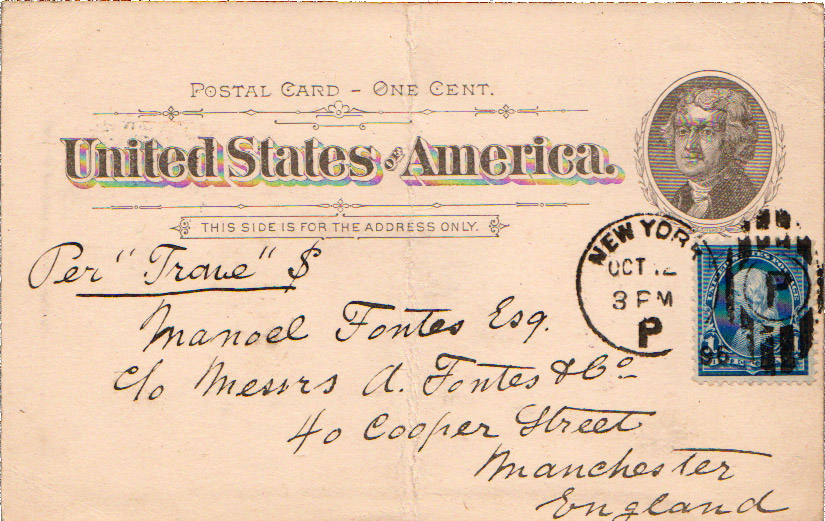 POSTAL CARD - ONE CENT.
United States OF America.
THIS SIDE IS FOR THE ADDRESS ONLY.
NEW YORK
OCT 12
3 PM
P
P
95
1
Per "Trave" $
Manoel Fontes Esq.
C/o Messrs A. Fontes & Co
40 Cooper Street
Manchester
England